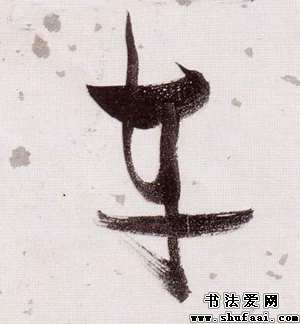 革
书法爱网
www.shufaai.com